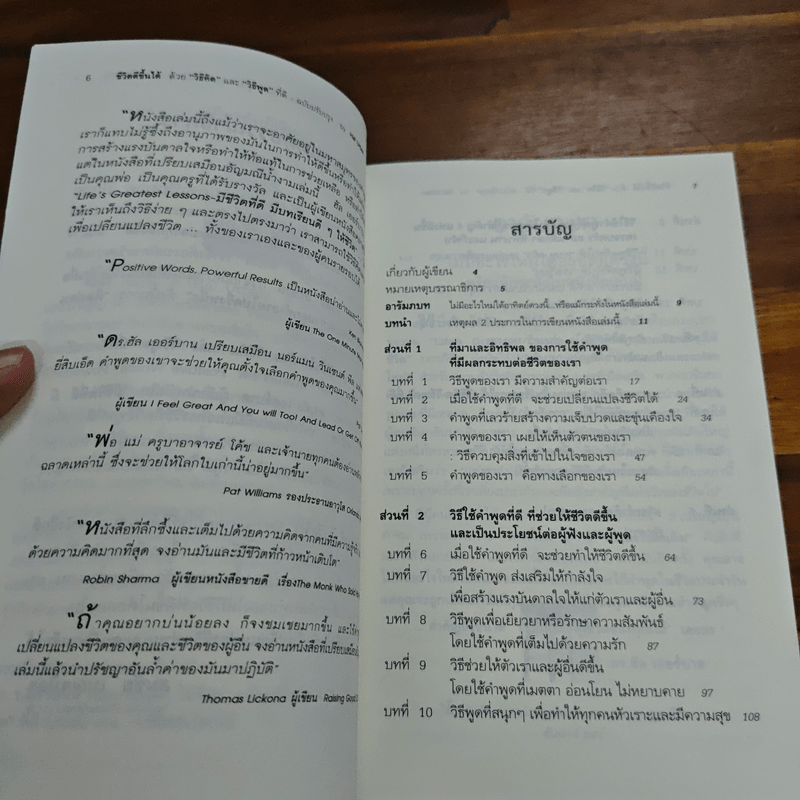 6 ชีวิตดีขึ้นได้ ด้วย "วิธีคิด" และ "วิธีพูด" ที่ดี - ฉบับปรับปรุง
"หนังสือเล่มนี้ถึงแม้ว่าเราจะอาศัยอยู่ในมหาสมุทร
เราก็แทบไม่รู้ซึ้งถึงอานุภาพของมันในการทำให้ดีขึ้นหรือทำ
การสร้างแรงบันดาลใจหรือทำให้ท้อแท้ในการช่วยเหลือ หรือ
แต่ในหนังสือที่เปรียบเสมือนอัญมณีน้ำงามเล่มนี้ ฮัล
เป็นคุณพ่อ เป็นคุณครูที่ได้รับรางวัล และเป็นผู้เขียนหนังสือ
"Life's Greatest Lessons-มีชีวิตที่ดี มีบทเรียนดี ๆ ให้ชีวิต"
ให้เราเห็นถึงวิธีง่าย ๆ และตรงไปตรงมาว่า เราสามารถใช้
เพื่อเปลี่ยนแปลงชีวิต ... ทั้งของเราเองและของผู้คนรายรอบ
"Positive Words, Powerful Results เป็นหนังสือน่าอ่าน
ผู้เขียน The One Minute
"ดร.ฮัล เออร์บาน เปรียบเสมือน นอร์แมน วินเซนต์ พีล
ยี่สิบเอ็ด คำพูดของเขาจะช่วยให้คุณตั้งใจเลือกคำพูดของคุณมากขึ้น"
ผู้เขียน I Feel Great And You will Too! And Lead Or Get Off
"พ่อ แม่ ครูบาอาจารย์ โค้ช และเจ้านายทุกคนต้องอ่าน
ฉลาดเหล่านี้ ซึ่งจะช่วยให้โลกใบเก่านี้น่าอยู่มากขึ้น"
Pat Williams รองประธานอาวุโส
"หนังสือที่ลึกซึ้งและเต็มไปด้วยความคิดจากคนที่มีความรู้
ด้วยความคิดมากที่สุด จงอ่านมันและมีชีวิตที่ก้าวหน้าเติบโต"
Robin Sharma ผู้เขียนหนังสือขายดี เรื่องThe Monk Who Sold
"ถ้าคุณอยากบ่นน้อยลง ก็จงชมเชยมากขึ้น และให้
เปลี่ยนแปลงชีวิตของคุณและชีวิตของผู้อื่น จงอ่านหนังสือที่เปรียบเสมือน
เล่มนี้แล้วนำปรัชญาอันล้ำค่าของมันมาปฏิบัติ"
Thomas Lickona ผู้เขียน Raising Good
7
สารบัญ
เกี่ยวกับผู้เขียน 4
หมายเหตุบรรณาธิการ 5
อารัมภบท ไม่มีอะไรใหม่ใต้อาทิตย์ดวงนี้...หรือแม้กระทั่งในหนังสือเล่มนี้ 9
บทนำ เหตุผล 2 ประการในการเขียนหนังสือเล่มนี้ 11
ส่วนที่ 1 ที่มาและอิทธิพล ของการใช้คำพูด
ที่มีผลกระทบต่อชีวิตของเรา
บทที่ 1 วิธีพูดของเรา มีความสำคัญต่อเรา 17
บทที่ 2 เมื่อใช้คำพูดที่ดี จะช่วยเปลี่ยนแปลงชีวิตได้ 24
บทที่ 3 คำพูดที่เลวร้ายสร้างความเจ็บปวดและขุ่นเคืองใจ 34
บทที่ 4 คำพูดของเรา เผยให้เห็นตัวตนของเรา
: วิธีควบคุมสิ่งที่เข้าไปในใจของเรา 47
บทที่ 5 คำพูดของเรา คือทางเลือกของเรา 54
ส่วนที่ 2 วิธีใช้คำพูดที่ดี ที่ช่วยให้ชีวิตดีขึ้น
และเป็นประโยชน์ต่อผู้ฟังและผู้พูด
บทที่ 6 เมื่อใช้คำพูดที่ดี จะช่วยทำให้ชีวิตดีขึ้น 64
บทที่ 7 วิธีใช้คำพูด ส่งเสริมให้กำลังใจ
เพื่อสร้างแรงบันดาลใจให้แก่ตัวเราและผู้อื่น 73
บทที่ 8 วิธีพูดเพื่อเยียวยาหรือรักษาความสัมพันธ์
โดยใช้คำพูดที่เต็มไปด้วยความรัก 87
บทที่ 9 วิธีช่วยให้ตัวเราและผู้อื่นดีขึ้น
โดยใช้คำพูดที่เมตตา อ่อนโยน ไม่หยาบคาย 97
บทที่ 10 วิธีพูดที่สนุกๆ เพื่อทำให้ทุกคนหัวเราะและมีความสุข 108